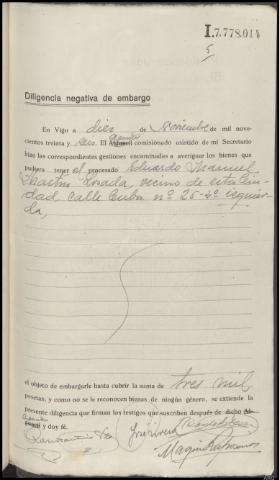 I.7,778,014
5
Diligencia negativa de embargo
En Vigo a diez de Noviembre de mil nove-
cientos treinta y seis. El Agente comisionado asistido de mi Secretario
hizo las correspondientes gestiones encaminadas a averiguar los bienes que
pudiera tener el procesado Eduardo Manuel
Martin Losada, vecino de esta Ciu-
dad, calle Cuba nº 25-4º izquier-
da,
el objeto de embargarle hasta cubrir la suma de tres mil
pesetas, y como no se le reconocen bienes de ningún género, se extiende la
presente diligencia que firman los testigos que suscriben después de dicho
y doy fé.